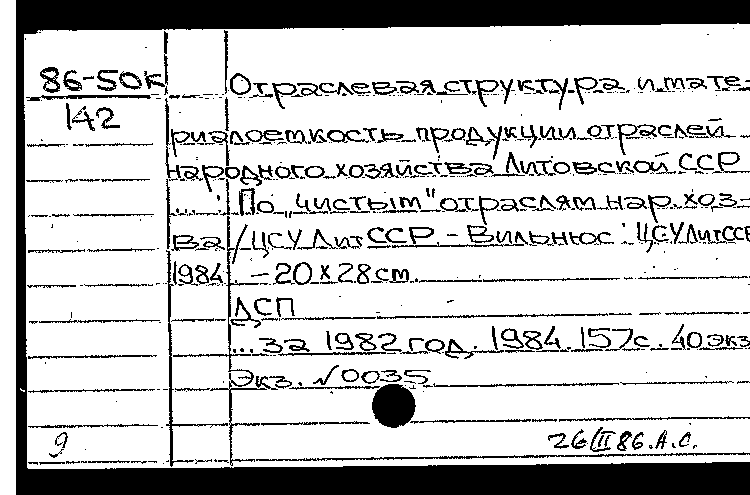 86-50к Отраслевая структура и мате-
142
риалоемкость продукции отраслей
народного хозяйства Литовской ССР
... : По „чистым" отраслям нар. хоз-
ва / ЦСУ ЛитССР. - Вильнюс : ЦСУ ЛитССР
1984 . - 20 х 28 cm.
ДСП
... за 1982 год. 1984. 157с. 40 экз
Экз. №0035
9 26/II 86. А.С.